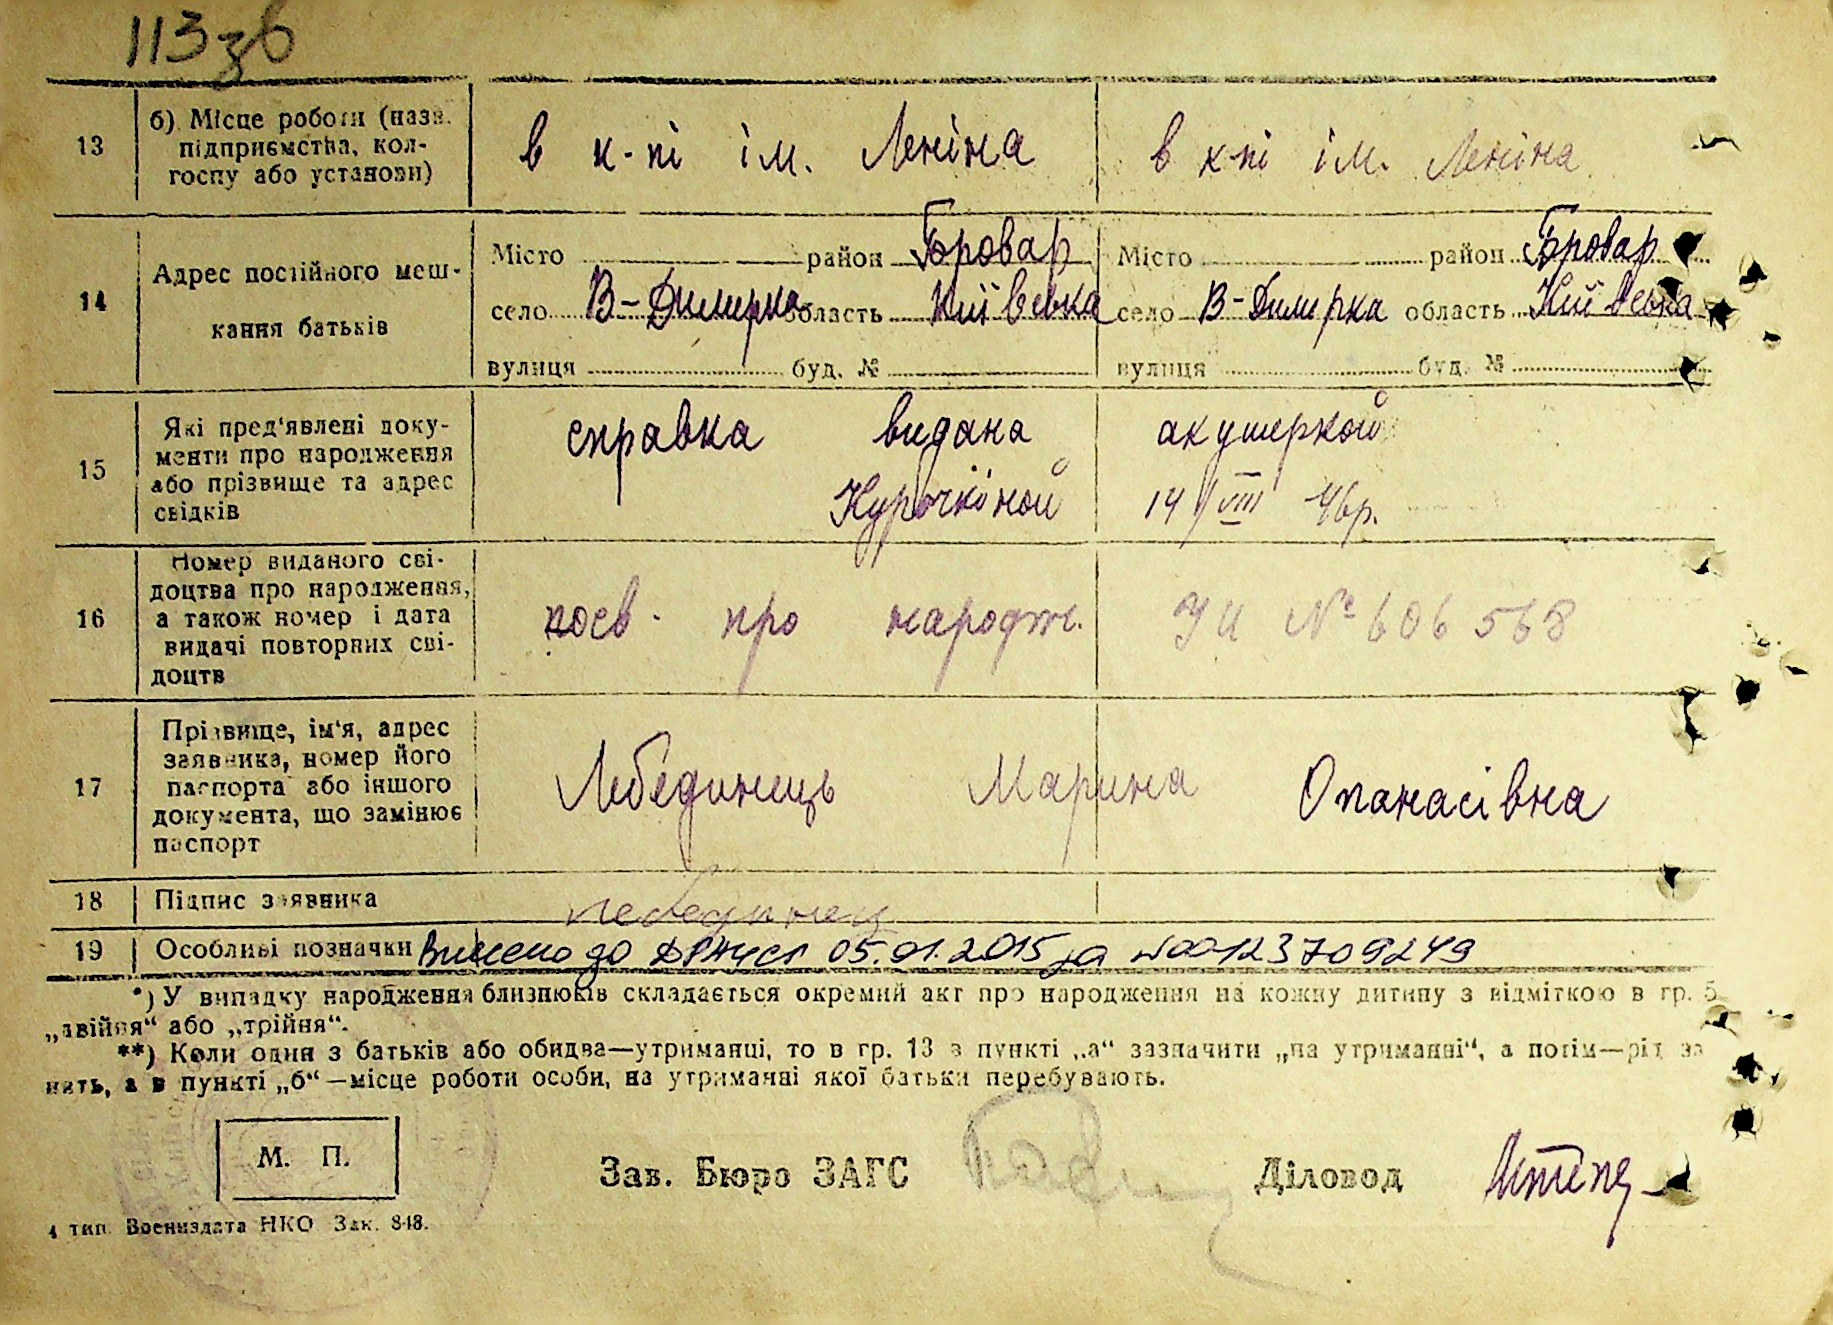 113зв
13 б) Місце роботи (назв. підприємства, колгоспу або установи) в к-пі ім. Леніна в к-пі ім. Леніна
14 Адрес постійного мешкання батьків
Місто район Бровар Місто район Бровар
село В-Димирка область Київська село В-Димирка область Київська
вулиця буд. № вулиця буд. №
15 Які пред'явлені документи про народження або прізвище та адрес свідків
справка видана акушеркой
Курочкіной 14/VIII 46р.
16 Номер виданого свідоцтва про народження, а також номер і дата видачі повторних свідоцтв
посв. про народж. УИ № 606568
17 Прізвище, ім'я, адрес заявника, номер його паспорта або іншого документа, що замінює паспорт
Лебединець Марина Опанасівна
18 Підпис заявника Лебединец
19 Особливі позначки Внесено до ДРАЦСГ 05.01.2015 за №00123709249
*) У випадку народження близнюків складається окремий акт про народження на кожну дитину з відміткою в гр. 5
„двійня“ або „трійня“.
**) Коли один з батьків або обидва—утриманці, то в гр. 13 в пункті „а“ зазначити „на утриманні“, а потім—рід за
нять, а в пункті „б“—місце роботи особи, на утриманні якої батьки перебувають.
М. П. Зав. Бюро ЗАГС Діловод
4 тип. Воениздата НКО Зак. 848.